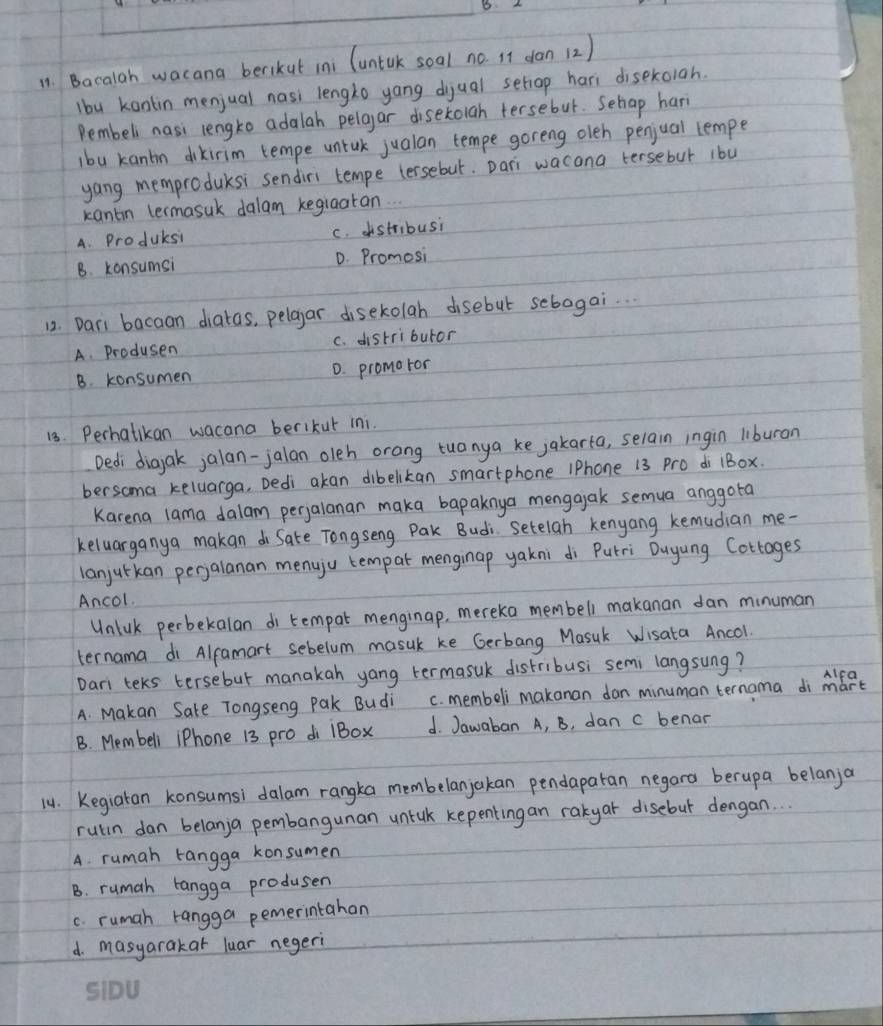 B. 2
11. Bacalah wacana berikut ini (untuk soal no. 11 dan 12)
Ibu kantin menjual nasi lengko yang dijual setiap hari disekolah.
Pembeli nasi lengko adalah pelajar disekolah tersebut. Setiap hari
ibu kantin dikirim tempe untuk jualan tempe goreng oleh penjual tempe
yang memproduksi sendiri tempe tersebut. Dari wacana tersebut ibu
kantin termasuk dalam kegiaatan...
A. Produksi
C. distribusi
B. konsumsi
D. Promosi
12. Dari bacaan diatas, pelajar disekolah disebut sebagai...
A. Produsen
C. distributor
B. konsumen
D. promotor
13. Perhatikan wacana berikut ini.
Dedi diajak jalan-jalan oleh orang tuanya ke jakarta, selain ingin liburan
bersama keluarga, Dedi akan dibelikan smartphone iPhone 13 Pro di iBox.
Karena lama dalam perjalanan maka bapaknya mengajak semua anggota
keluarganya makan di Sate Tongseng Pak Budi. Setelah kenyang kemudian me-
lanjutkan perjalanan menuju tempat menginap yakni di Putri Duyung Cottages
Ancol.
Untuk perbekalan di tempat menginap, mereka membeli makanan dan minuman
ternama di Alfamart sebelum masuk ke Gerbang Masuk Wisata Ancol.
Dari teks tersebut manakah yang termasuk distribusi semi langsung?
A. Makan Sate Tongseng Pak Budi
C. membeli makanan dan minuman ternama di Alfa mart
B. Membeli iPhone 13 pro di iBox
d. Jawaban A, B, dan C benar
14. Kegiatan konsumsi dalam rangka membelanjakan pendapatan negara berupa belanja
rutin dan belanja pembangunan untuk kepentingan rakyat disebut dengan...
A. rumah tangga konsumen
B. rumah tangga produsen
C. rumah tangga pemerintahan
d. masyarakat luar negeri
SiDU